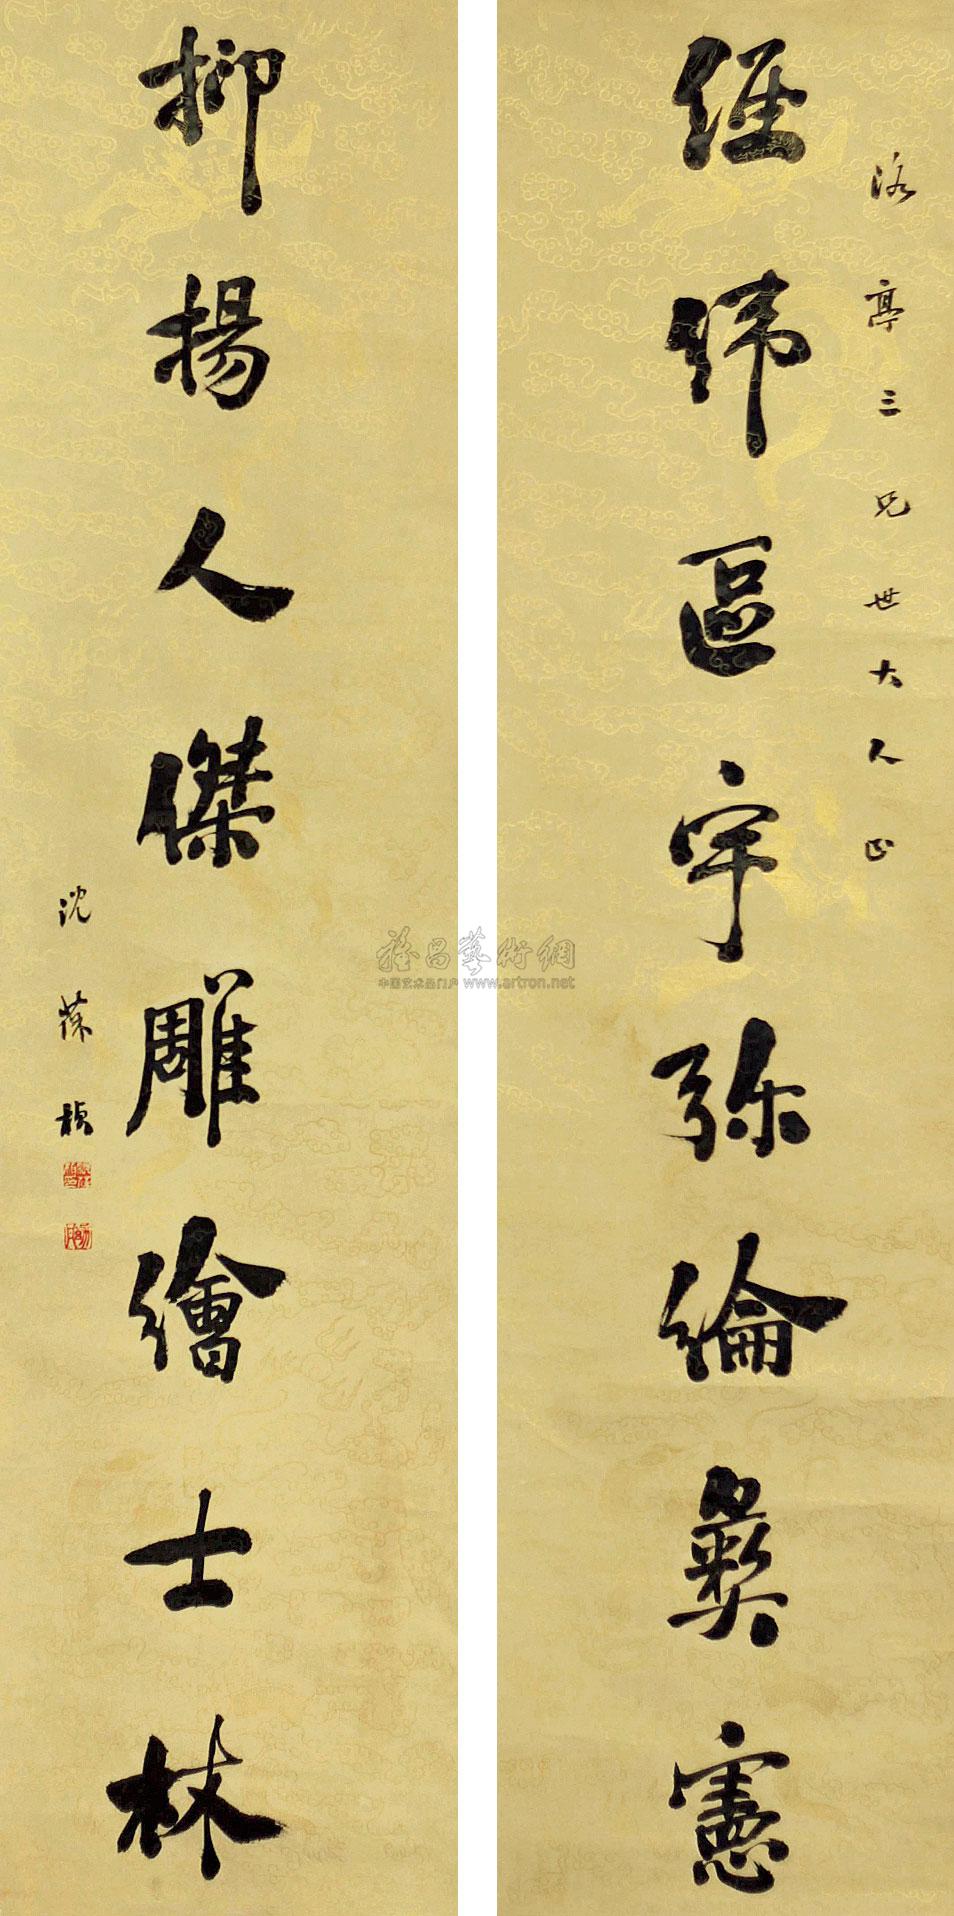 洛亭三兄世大人正
經緯區宇弥綸彝憲
抑揚人傑雕繪士林
沈葆楨
雅昌藝術網
中国艺术品门户 www.artron.net